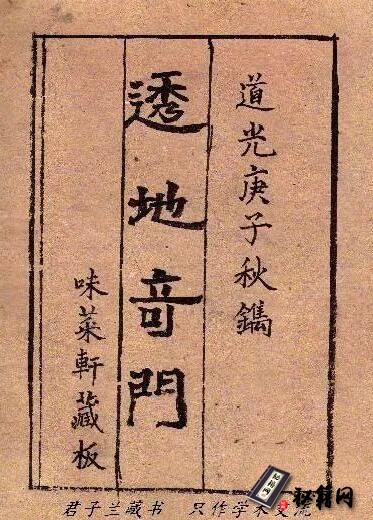 道光庚子秋鐫
透地奇門
味菜軒藏板
君子兰藏书 只作学术交流
秘籍网